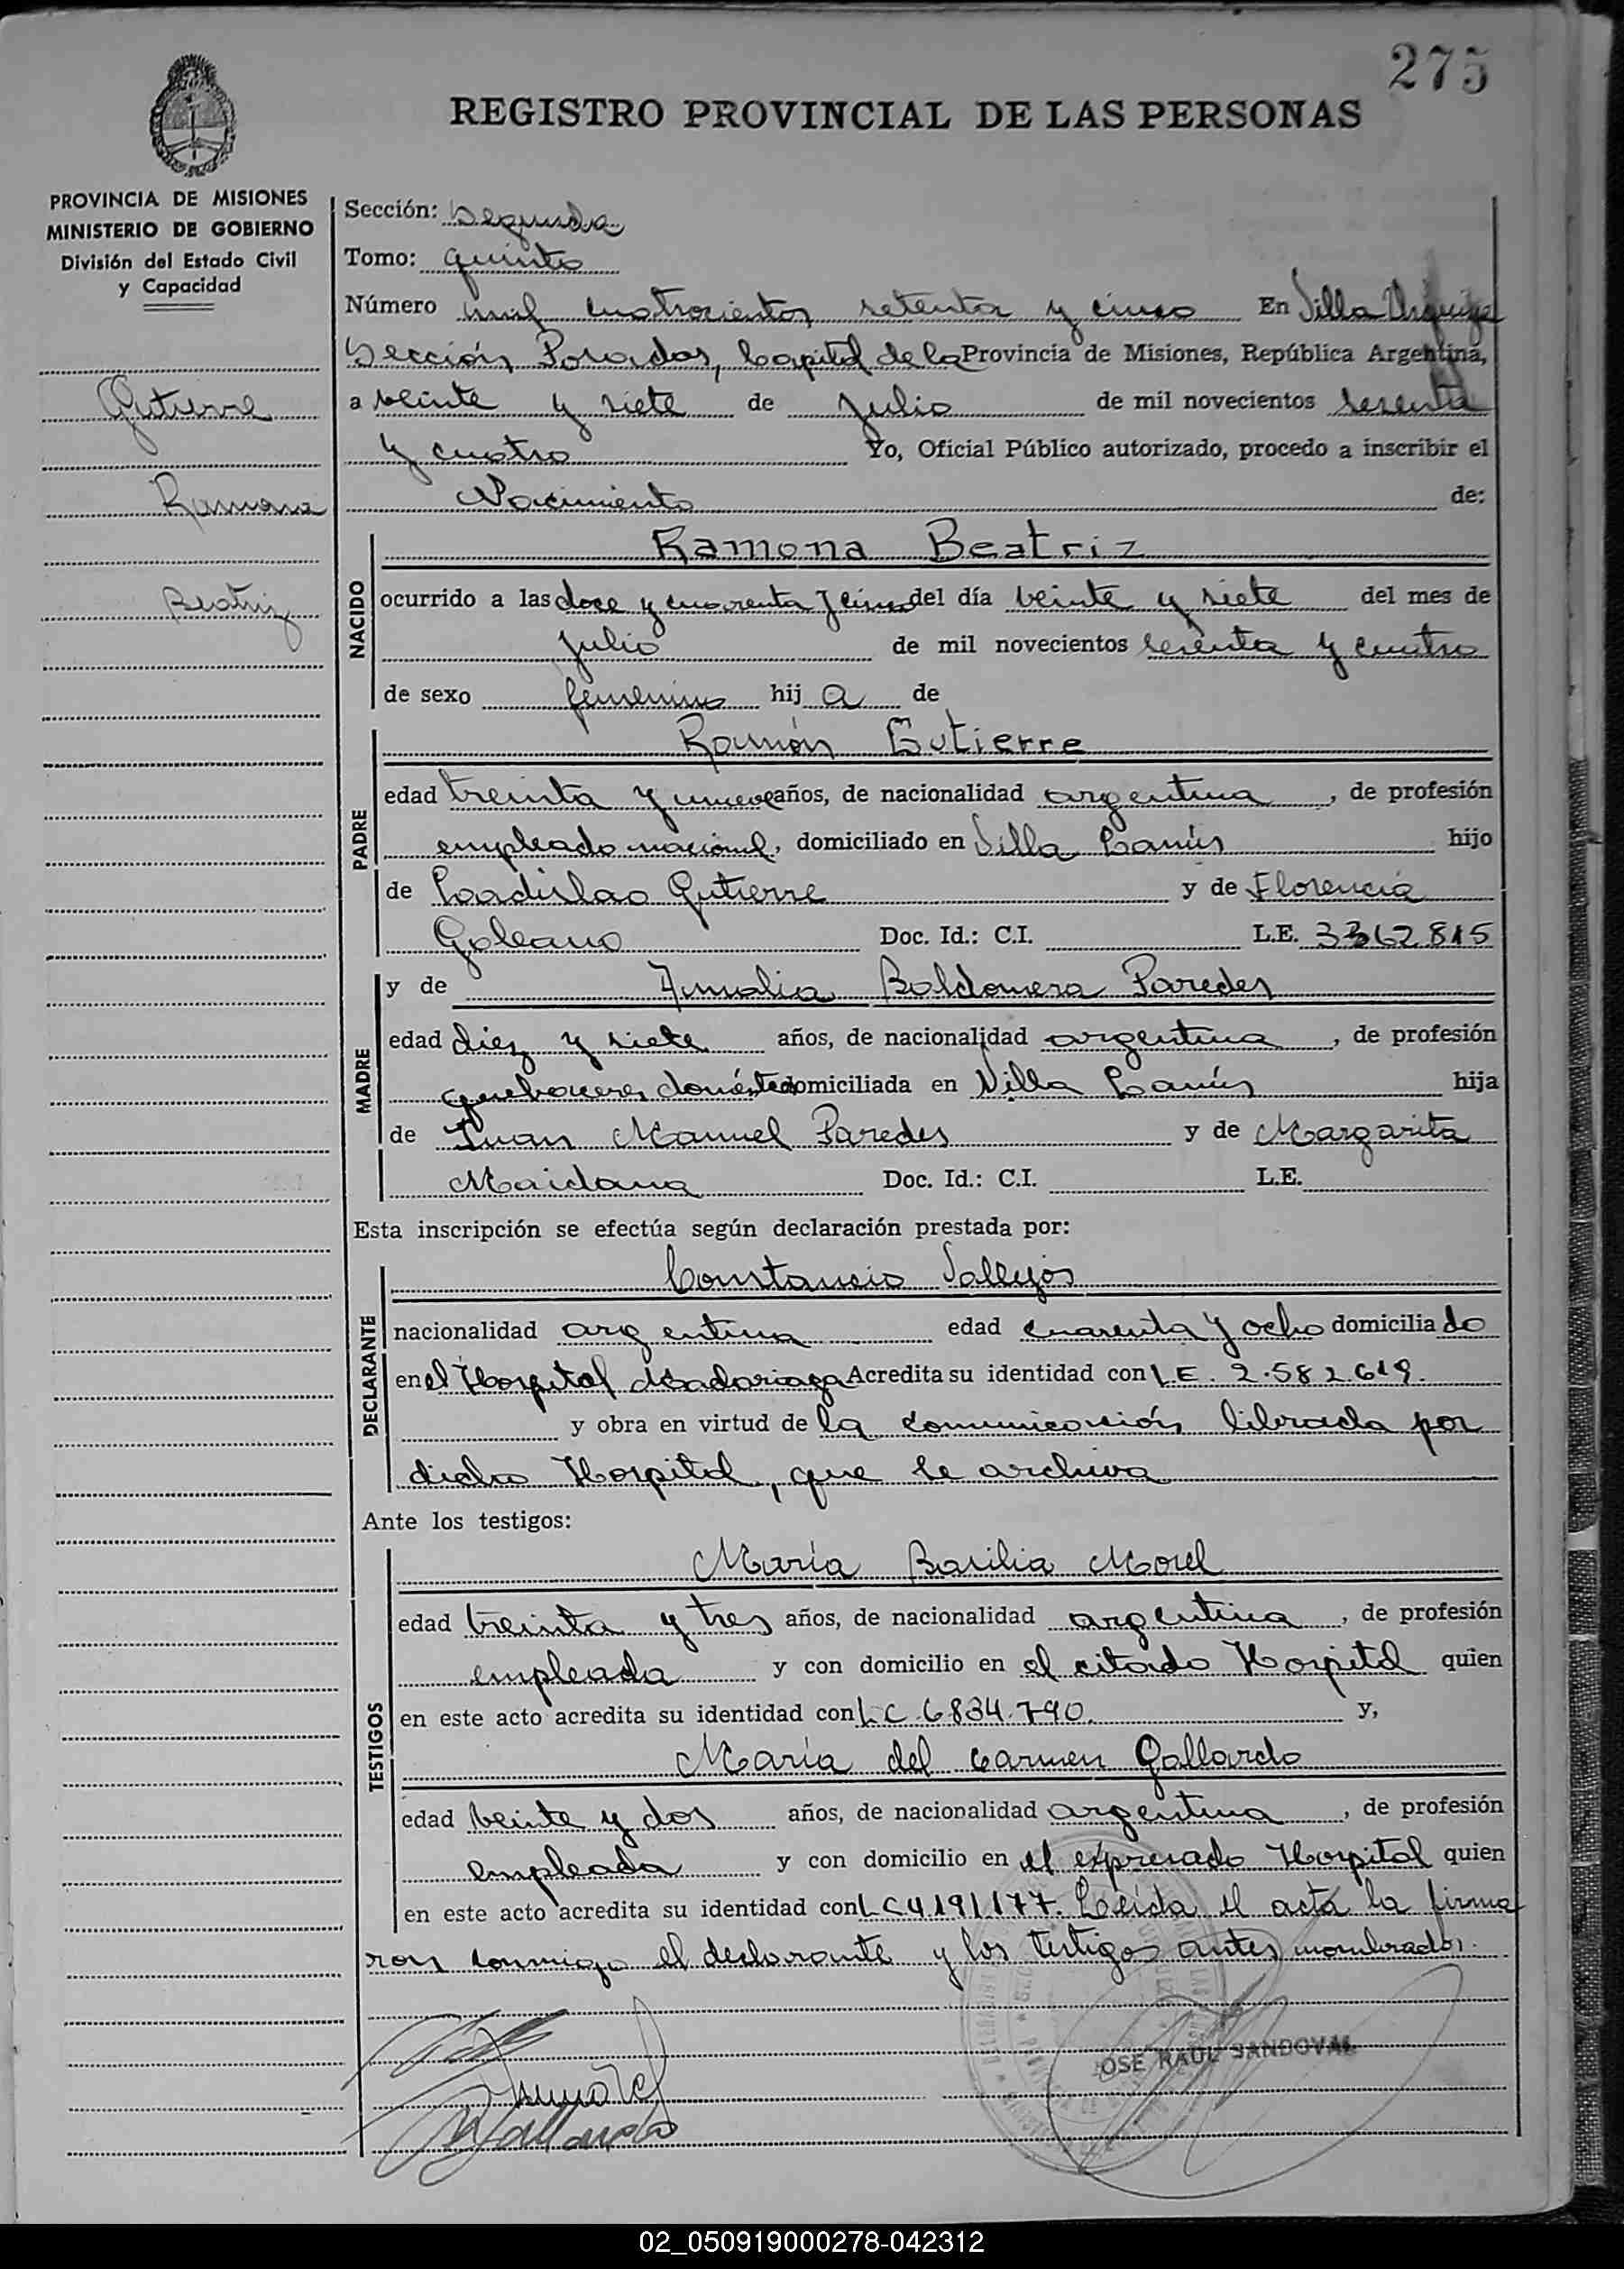 275
REGISTRO PROVINCIAL DE LAS PERSONAS
PROVINCIA DE MISIONES
MINISTERIO DE GOBIERNO
División del Estado Civil
y Capacidad
Gutierre
Ramona
Beatriz
Sección: Segunda
Tomo: quinto
Número mil cuatrocientos setenta y cinco En Villa Urquiza
Sección Posadas, Capital de la Provincia de Misiones, República Argentina,
a veinte y siete de Julio de mil novecientos sesenta
y cuatro Yo, Oficial Público autorizado, procedo a inscribir el
Nacimiento de:
NACIDO
Ramona Beatriz
ocurrido a las doce y cuarenta y cinco del día veinte y siete del mes de
Julio de mil novecientos sesenta y cuatro
de sexo femenino hij a de
PADRE
Ramón Gutierre
edad treinta y nueve años, de nacionalidad argentina, de profesión
empleado nacional, domiciliado en Villa Lanús hijo
de Ladislao Gutierre y de Florencia
Galeano Doc. Id.: C.I. L.E. 3362815
MADRE
y de Amalia Baldomera Paredes
edad diez y siete años, de nacionalidad argentina, de profesión
quehaceres domésticos domiciliada en Villa Lanús hija
de Juan Manuel Paredes y de Margarita
Maidana Doc. Id.: C.I. L.E.
Esta inscripción se efectúa según declaración prestada por:
DECLARANTE
Constancio Vallejos
nacionalidad argentina edad cuarenta y ocho domicilia do
en el Hospital Madariaga Acredita su identidad con L.E. 2.582.619.
y obra en virtud de la comunicación librada por
dicho Hospital, que se archiva
Ante los testigos:
TESTIGOS
María Basilia Morel
edad treinta y tres años, de nacionalidad argentina, de profesión
empleada y con domicilio en el citado Hospital quien
en este acto acredita su identidad con L C 6834.790. y,
María del Carmen Gallardo
edad veinte y dos años, de nacionalidad argentina, de profesión
empleada y con domicilio en el expresado Hospital quien
en este acto acredita su identidad con L C 4.191.177. Leída el acta la firma
ron conmigo el declarante y los testigos antes nombrados.
JOSE RAUL SANDOVAL
02_050919000278-042312